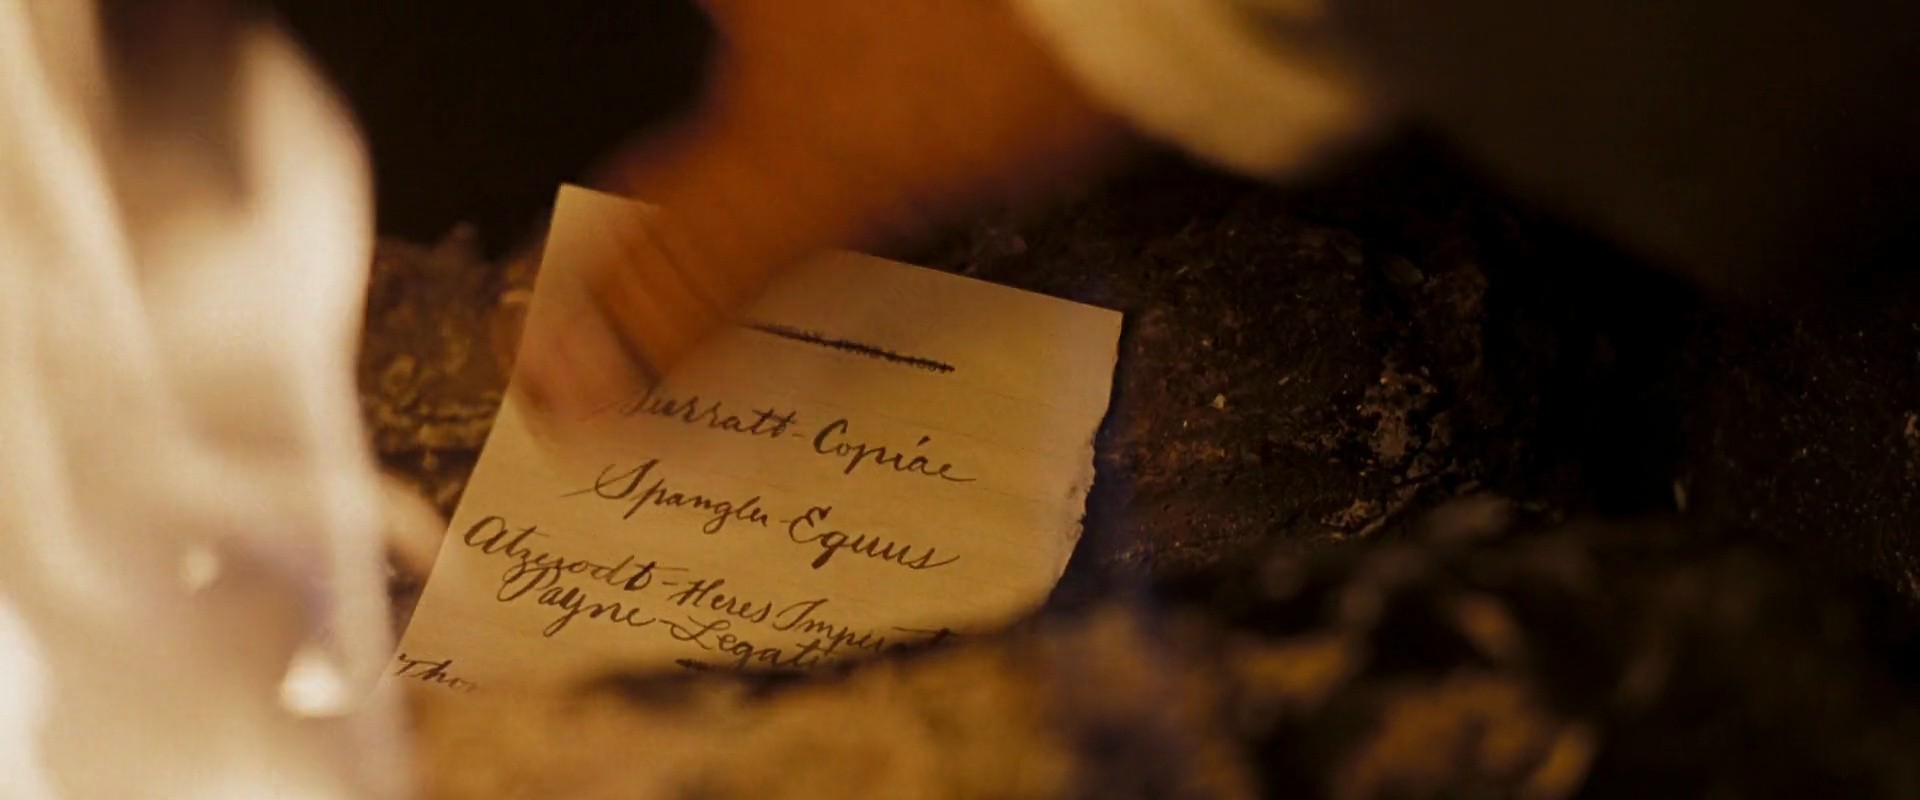 Surratt-Copiáe
Spangler-Equus
Atzerodt-Heres
Payne-Legati